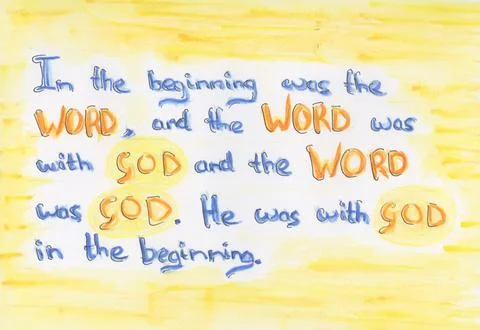 In the beginning was the
WORD, and the WORD was
with GOD and the WORD
was GOD. He was with GOD
in the beginning.